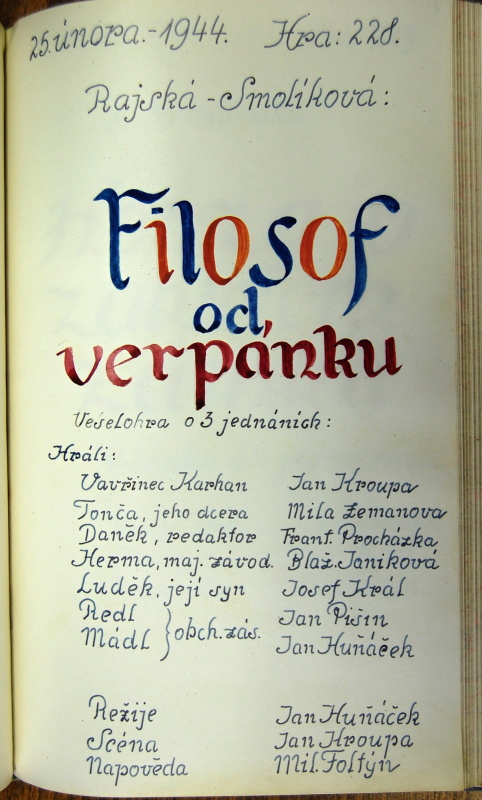 25. února.-1944. Hra: 228.
Rajská - Smolíková:
Filosof
od
verpánku
Veselohra o 3 jednáních:
Hráli:
Vavřinec Karhan Jan Kroupa
Tonča, jeho dcera Mila Zemanova
Daněk, redaktor Frant. Procházka
Herma, maj. závod. Blaž. Janiková
Luděk, její syn Josef Král
Redl } obch. zás. Jan Pišin
Mádl Jan Huňáček
Režije Jan Huňáček
Scéna Jan Kroupa
Napověda Mil. Foltýn